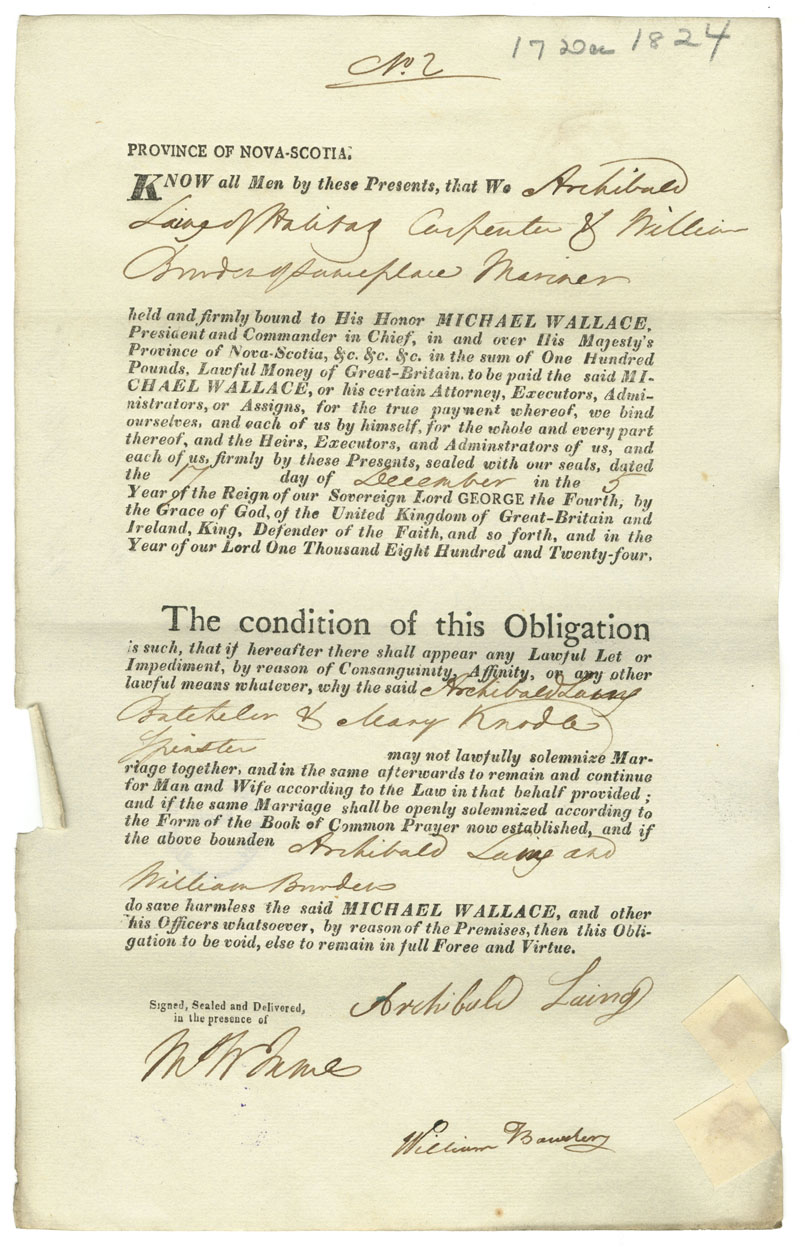 No. 2
17 Dec 1824
PROVINCE OF NOVA-SCOTIA.
KNOW all Men by these Presents, that We Archibald
Laing of Halifax Carpenter & William
of same place Mariner
held and firmly bound to His Honor MICHAEL WALLACE,
President and Commander in Chief, in and over His Majesty's
Province of Nova-Scotia, &c. &c. &c. in the sum of One Hundred
Pounds, Lawful Money of Great-Britain, to be paid the said MI-
CHAEL WALLACE, or his certain Attorney, Executors, Admi-
nistrators, or Assigns, for the true payment whereof, we bind
ourselves, and each of us by himself, for the whole and every part
thereof, and the Heirs, Executors, and Adminstrators of us, and
each of us, firmly by these Presents, sealed with our seals, dated
the 17 day of December in the 5
Year of the Reign of our Sovereign Lord GEORGE the Fourth, by
the Grace of God, of the United Kingdom of Great-Britain and
Ireland, King, Defender of the Faith, and so forth, and in the
Year of our Lord One Thousand Eight Hundred and Twenty-four.
The condition of this Obligation
is such, that if hereafter there shall appear any Lawful Let or
Impediment, by reason of Consanguinity, Affinity, or any other
lawful means whatever, why the said Archibald Laing
Batcheler & Mary Knodle
Spinster may not lawfully solemnize Mar-
riage together, and in the same afterwards to remain and continue
for Man and Wife according to the Law in that behalf provided;
and if the same Marriage shall be openly solemnized according to
the Form of the Book of Common Prayer now established, and if
the above bounden Archibald Laing and
William
do save harmless the said MICHAEL WALLACE, and other
his Officers whatsoever, by reason of the Premises, then this Obli-
gation to be void, else to remain in full Force and Virtue.
Signed, Sealed and Delivered,
in the presence of
Archibald Laing
William